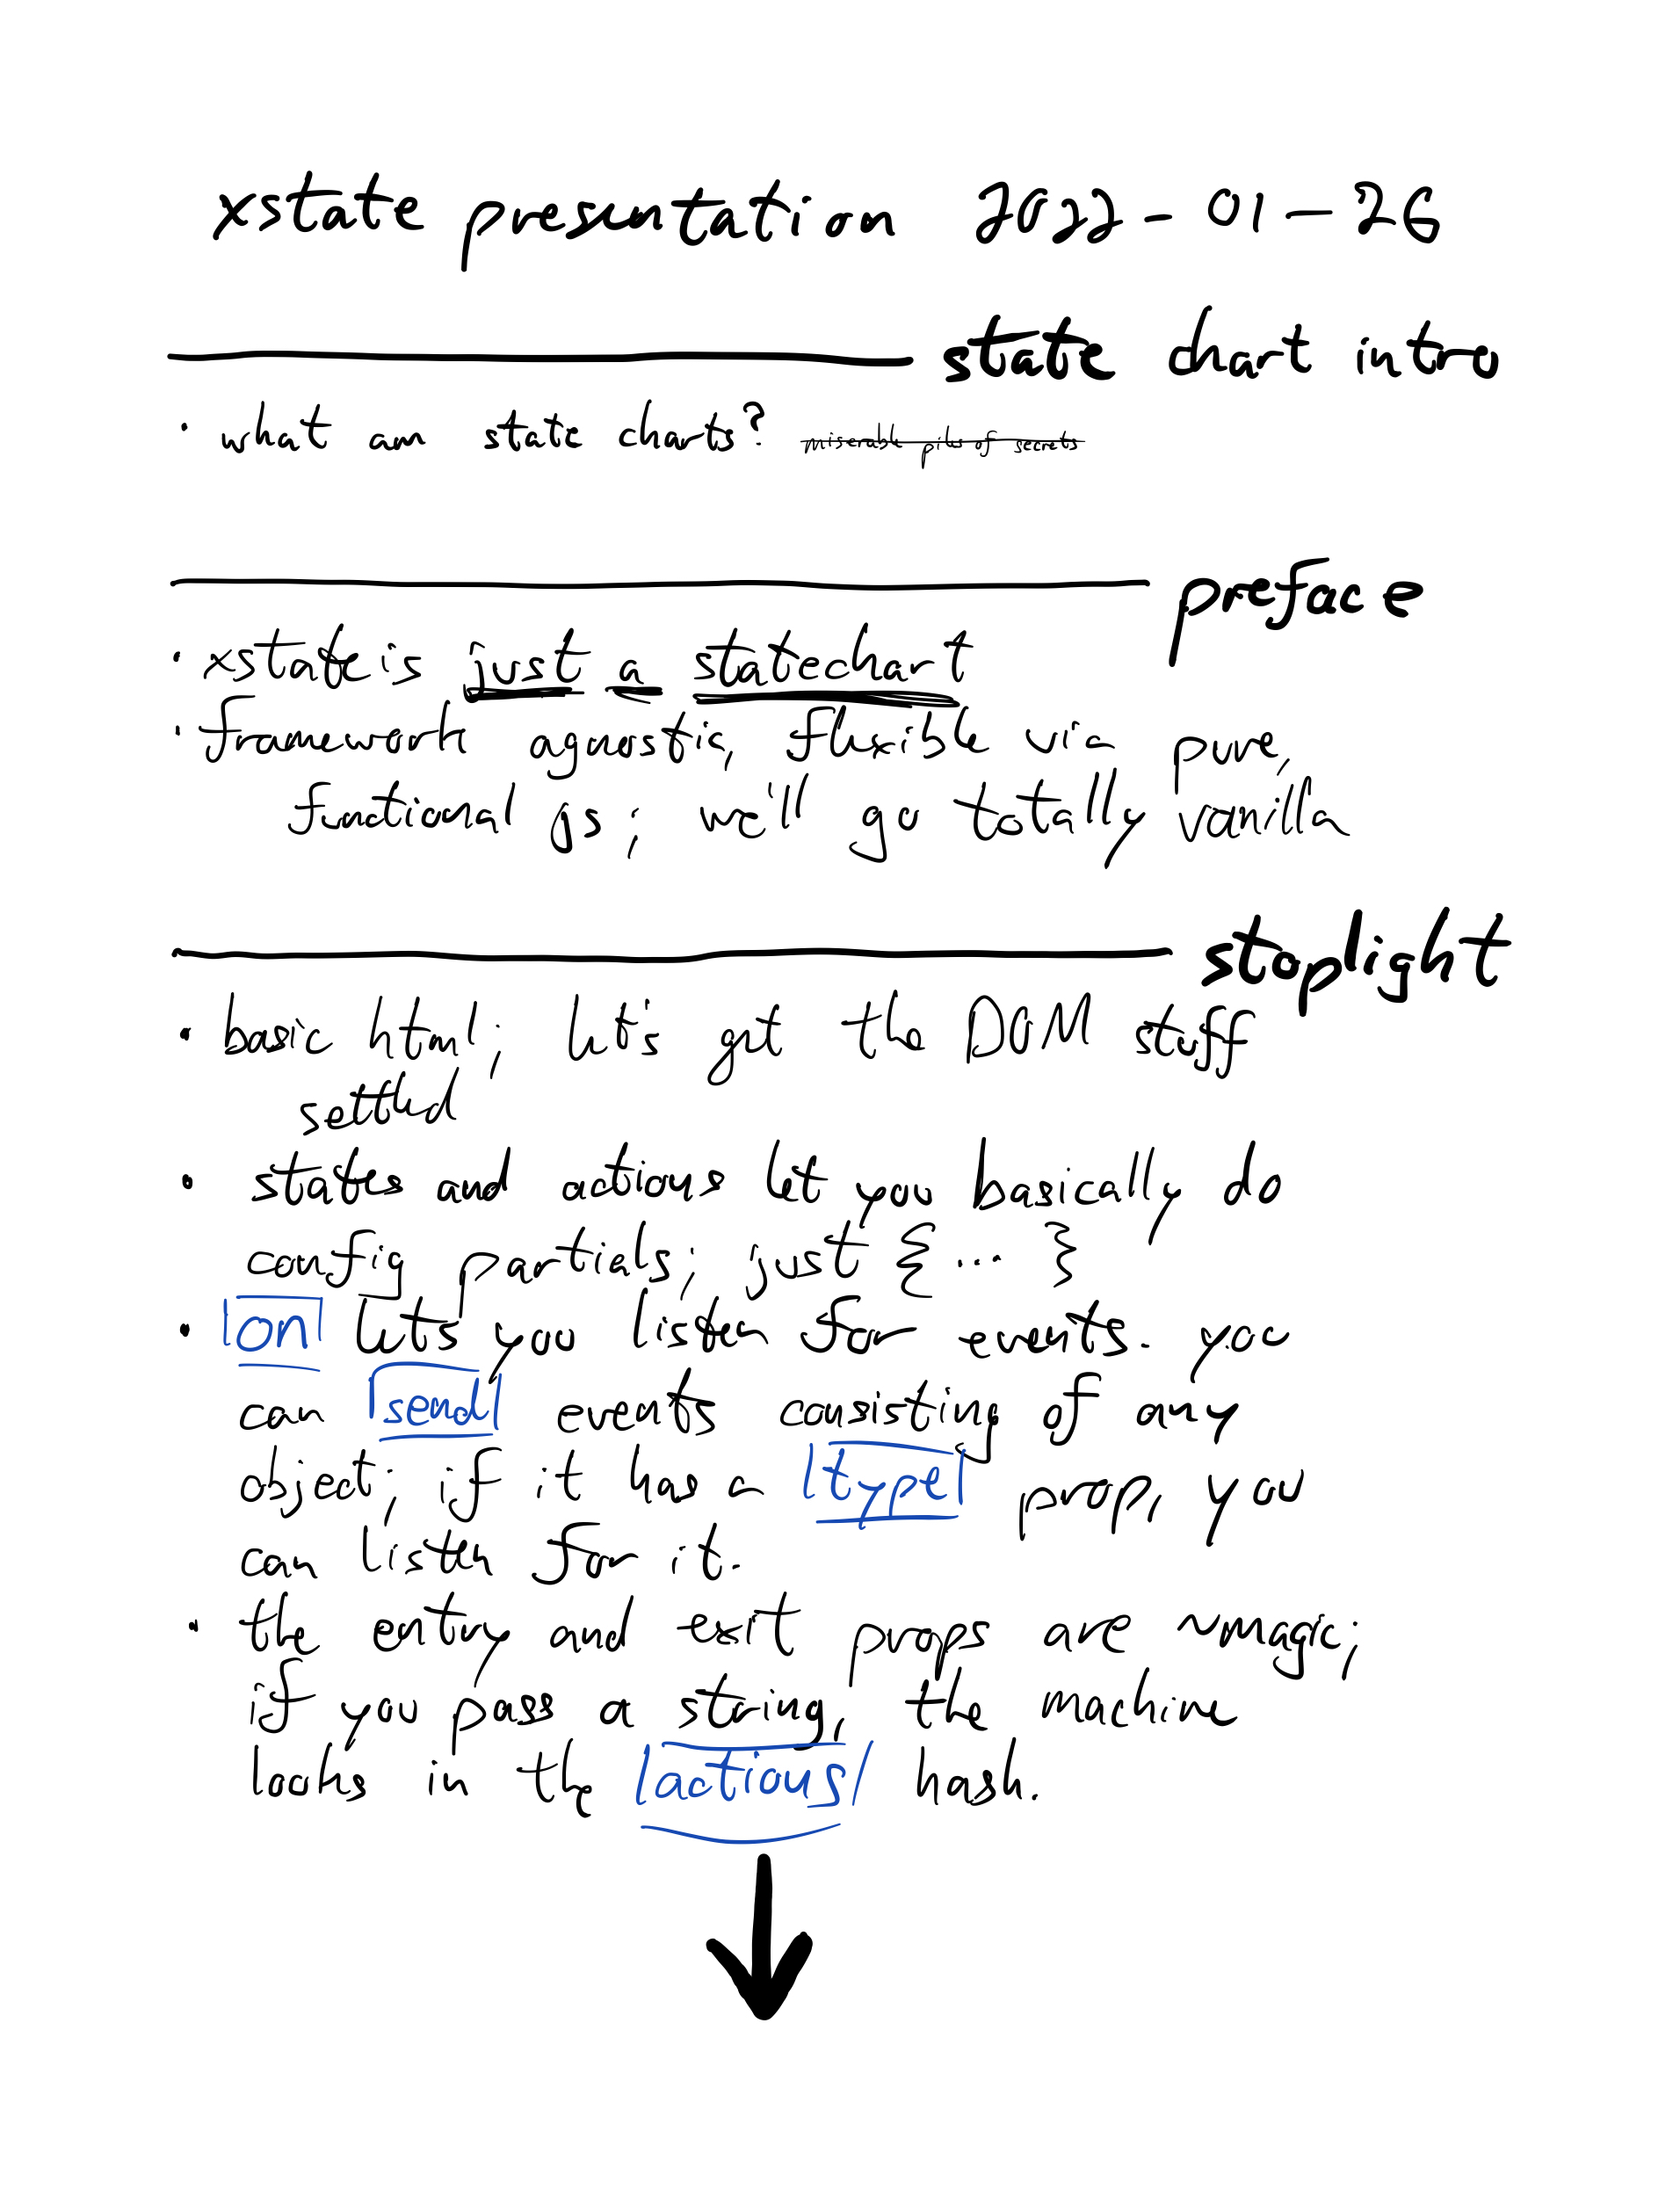 xstate presentation 2022-01-26
state chart intro
· what am state charts? miserable piles of secrets
preface
· xstate is just a statechart
· framework agnostic, flexible via pure,
functional js; we'll go totally vanilla
stoplight
· basic html; let's get the DOM stuff
settled
· states and actions let you basically do
config partials; just {... }
· on lets you listen for events. you
can send events consisting of any
object; if it has a type prop, you
can listen for it.
· the entry and exit props are ~magic;
if you pass a string, the machine
looks in the actions hash.